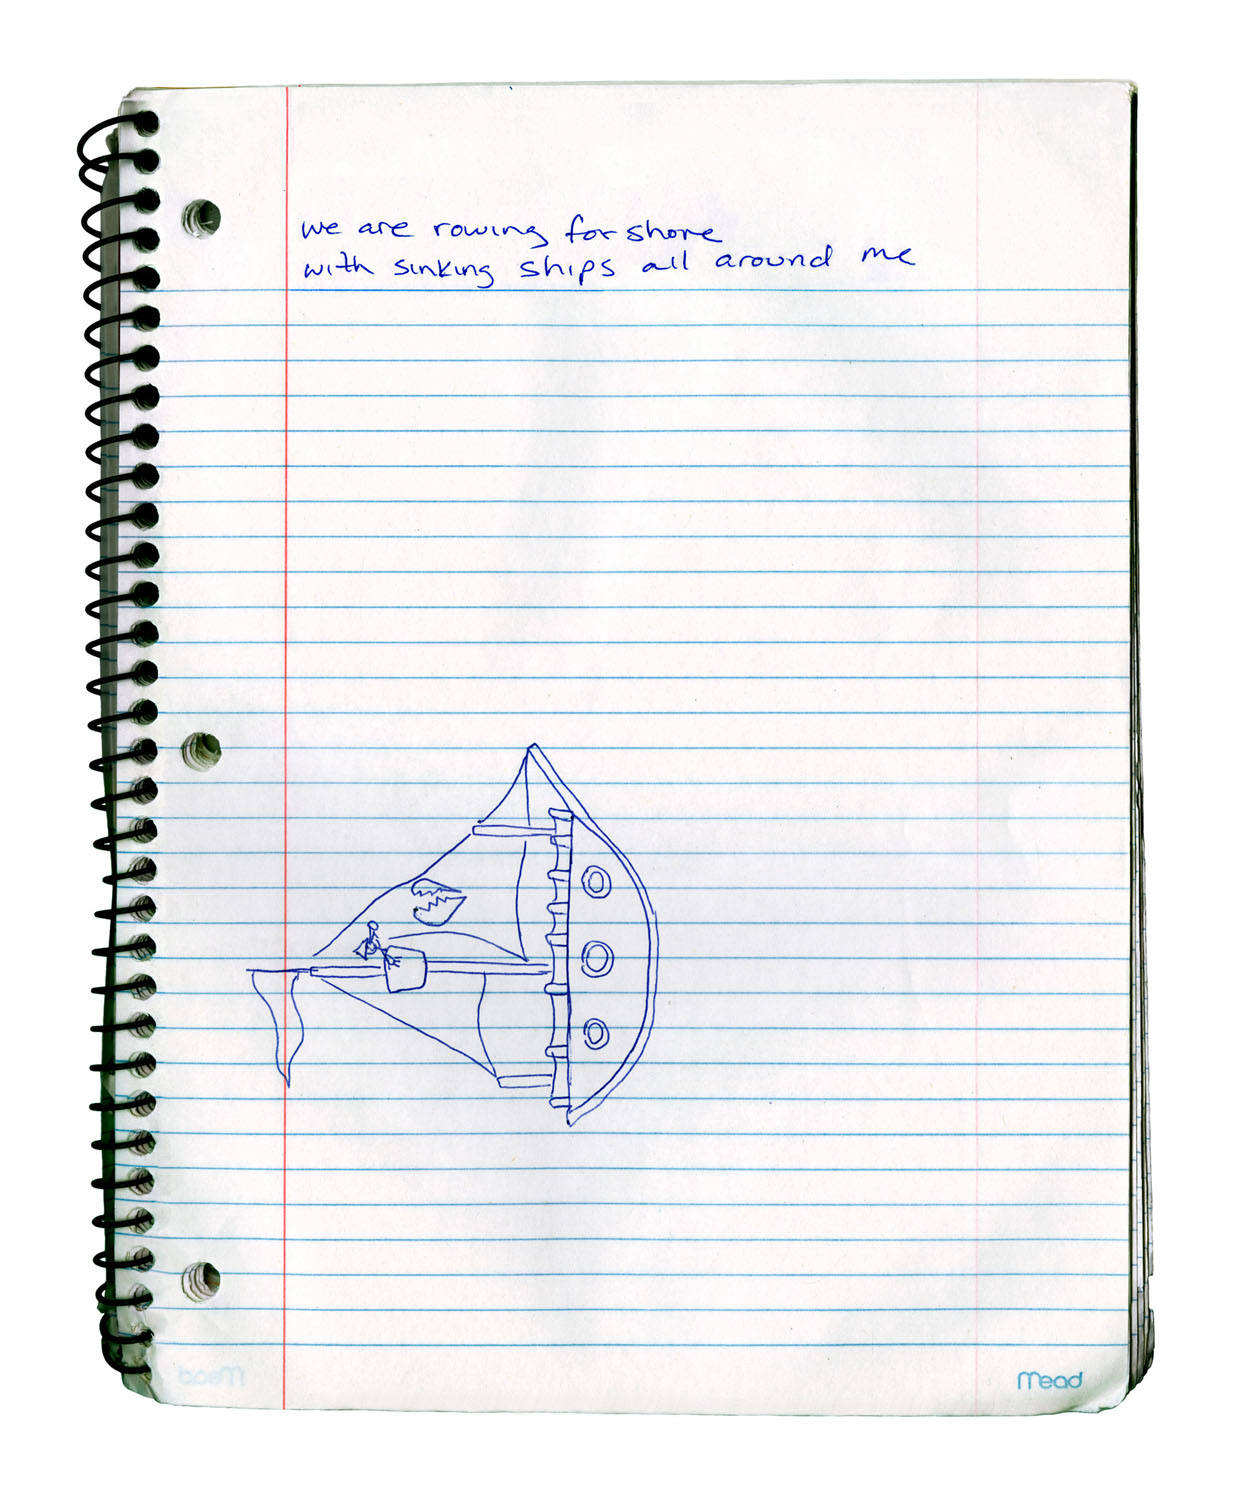 we are rowing for shore
with sinking ships all around me
Mead